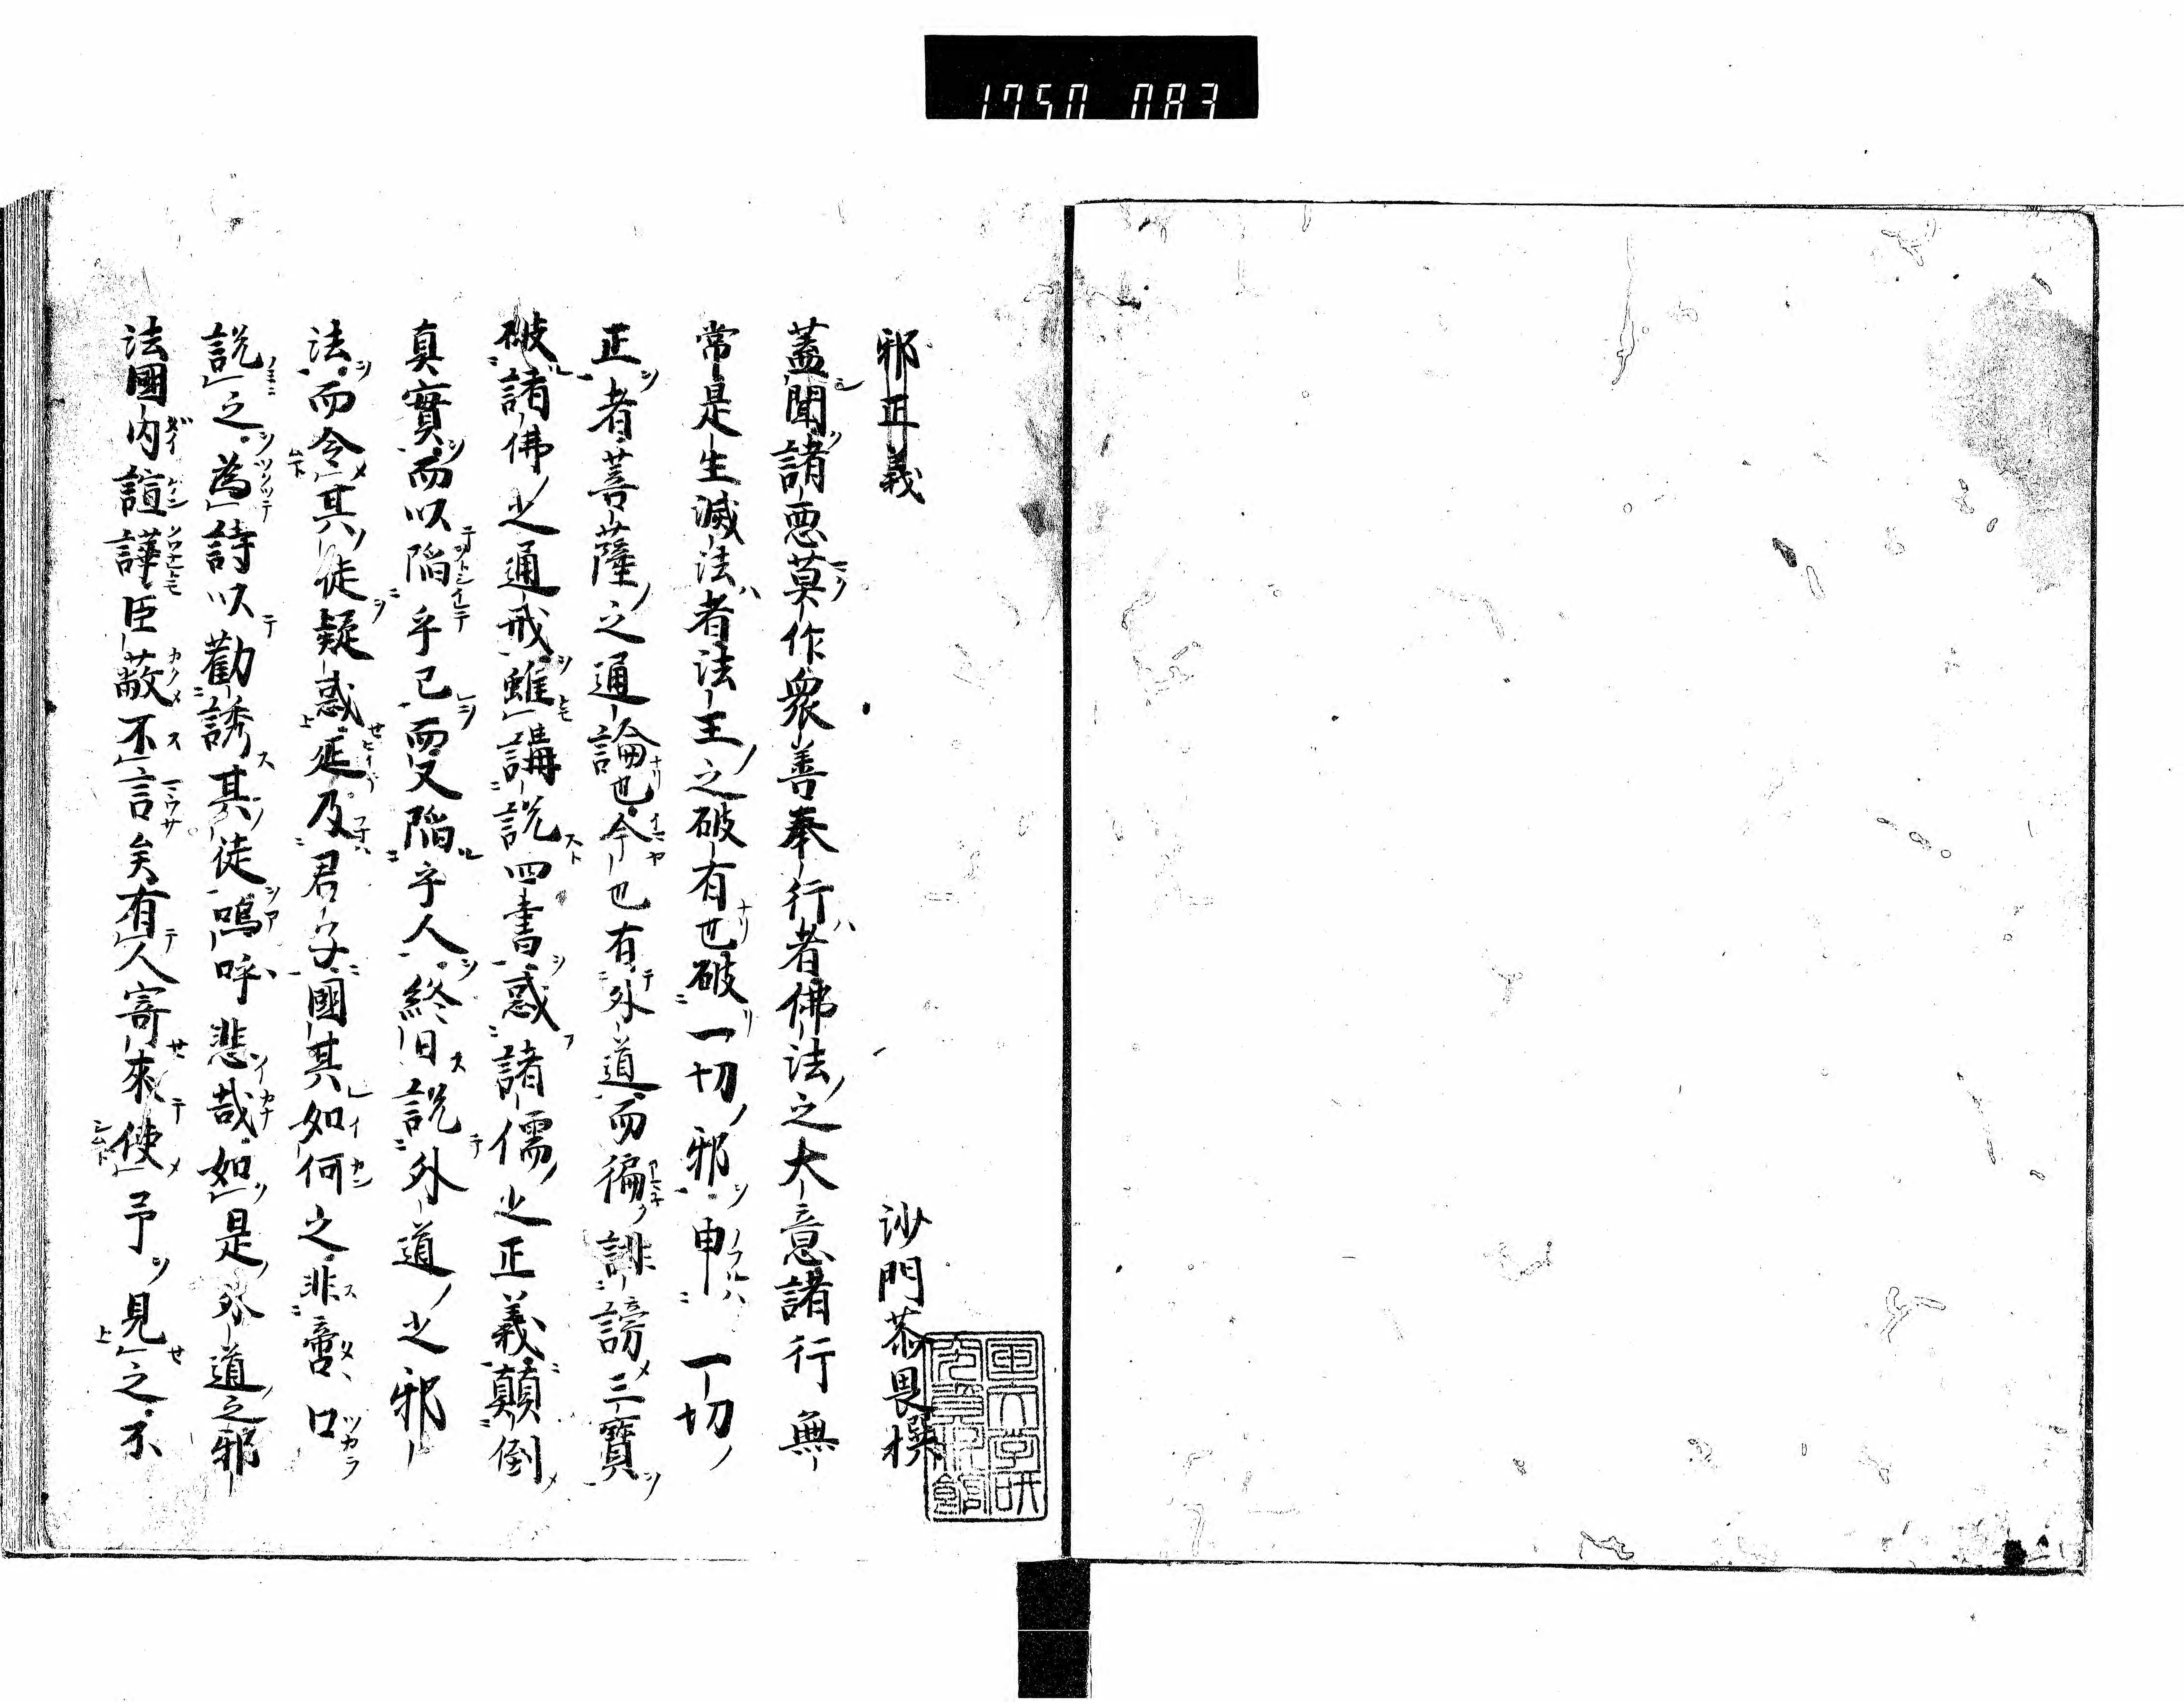 1750 083
邪正義
沙門恭畏撰
蓋聞諸悪莫作衆善奉行者佛法之大意諸行無
常是生滅法者法王之破有也破一切邪申一切
正者菩薩之通論也今也有外道而徧誹謗三寶
破諸佛之通戒雖講説四書惑諸儒之正義顛倒
真實而以陥乎已而又陥乎人終日説外道之邪
法而令其徒疑惑延及君子國其如何之非啻口
説之為詩以勸誘其徒嗚呼悲哉如是外道之邪
法國内諠譁臣蔽不言矣有人寄來使予見之不